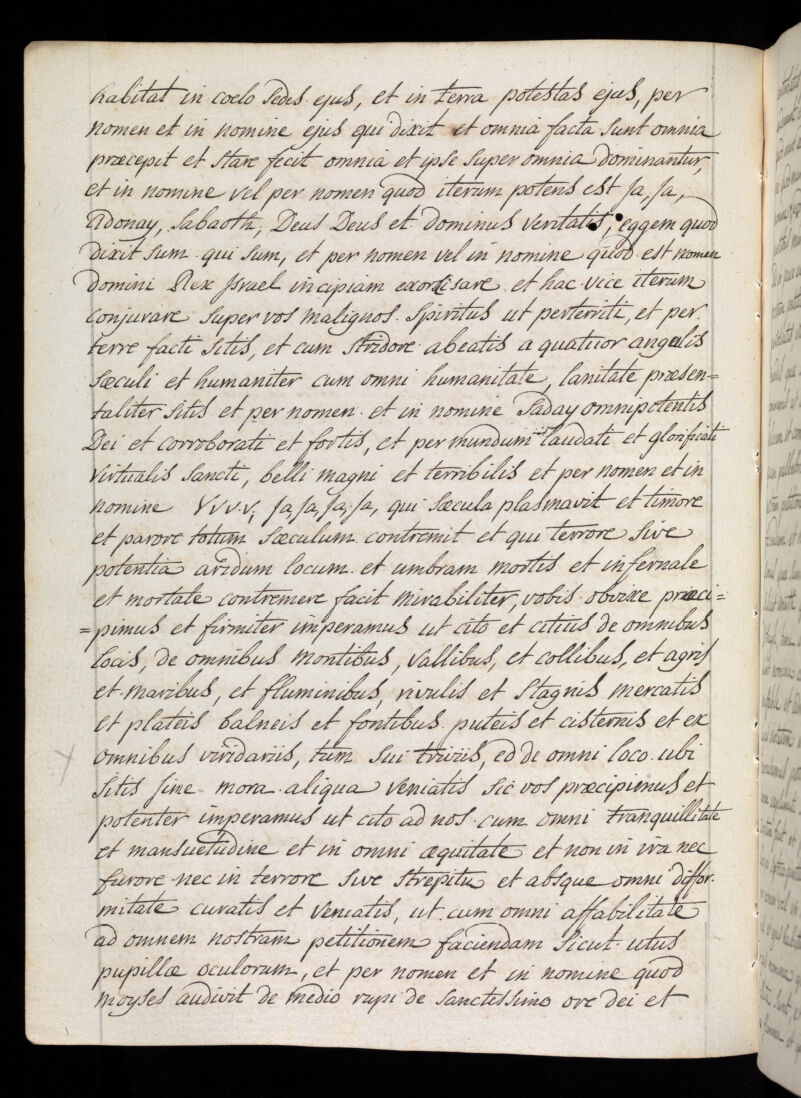 habitat in coelo Sedes ejus, et in terra potestas ejus, per
nomen et in nomine ejus qui dixit et omnia facta Sunt omnia
præcepit et Stare fecit omnia et ipse Super omnia dominantur,
et in nomine vel per nomen quod iterum potens est Ja, Ja,
Adonay, Sabaoth, Deus Deus et dominus veritatis, eggem quod
dixit Sum qui Sum, et per nomen vel in nomine quod est nomen
domini Rex Jsrael incipiam exorcisare et hac vice iterum
Conjurare Super vos malignos Spiritus ut perterriti, et per
terre facti Sitis, et cum Stridore abeatis a quatuor angelis
Sæculi et humaniter cum omni humanitate, lanitate præsen=
taliter Sitis et per nomen et in nomine Saday omnipotentis
Dei et corroborati et fortis, et per mundum laudati et glorificati
Virtualis Sancti, belli magni et terribilis et per nomen et in
nomine V.V.V.V, Ja, Ja, Ja, Ja, qui Sæcula plasmavit et timore
et parore totum Sæculum contremit et qui terrore Sive
potentia aridum locum et umbram mortis et infernale
et mortale contremere facit mirabiliter, vobis præci=
=pimus et firmiter imperamus ut cito et citius de omnibus
locis, de omnibus montibus, vallibus, et collibus, et agris
et maribus, et fluminibus, rivulis et Stagnis mercatis
et plateis balneis et fontibus puteis et cisternis et ex
omnibus viridariis, tum Sui triviis, ed de omni loco ubi
Sitis Sine mora aliqua veniatis Sic vos præcipimus et
potenter imperamus ut cito ad nos cum omni tranquillitate
et mansuetudine et in omni æquitate et non in ira nec
furore nec in terrore Sive Strepitu et absque omni diffor
mitate curatis et veniatis, ut cum omni affabilitate
ad omnem nostram petitionem faciendam Sicut utus
pupillæ oculorum, et per nomen et in nomine quod
Moyses audivit de medio rupi de Sanctissimo ore dei et